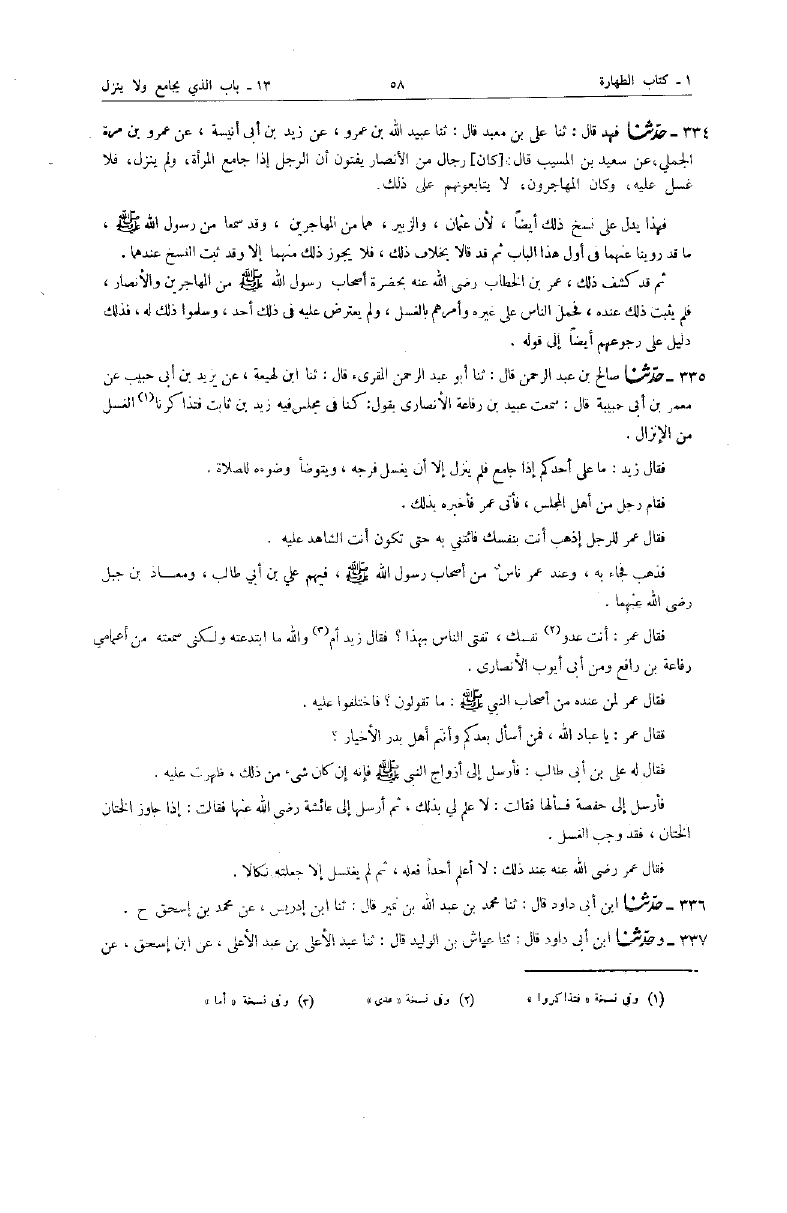 ١ - كتاب الطهارة ٥٨ ١٣ - باب الذي يجامع ولا ينزل
٣٣٤ - حدثنا فهد قال : ثنا على بن معبد قال : ثنا عبيد الله بن عمرو ، عن زيد بن أبى أنيسة ، عن عمرو بن مرة
الجملي، عن سعيد بن المسيب قال: [كان] رجال من الأنصار يفتون أن الرجل إذا جامع المرأة، ولم ينزل، فلا
غسل عليه، وكان المهاجرون، لا يتابعونهم على ذلك.
فهذا يدل على نسخ ذلك أيضاً ، لأن عثمان ، والزبير ، هما من المهاجرين ، وقد سمعا من رسول الله ﷺ ،
ما قد روينا عنهما فى أول هذا الباب ثم قد قالا بخلاف ذلك ، فلا يجوز ذلك منهما إلا وقد ثبت النسخ عندهما .
ثم قد كشف ذلك ، عمر بن الخطاب رضى الله عنه بحضرة أصحاب رسول الله ﷺ من المهاجرين والأنصار ،
فلم يثبت ذلك عنده ، فحمل الناس على غيره وأمرهم بالغسل ، ولم يعترض عليه فى ذلك أحد ، وسلموا ذلك له ، فذلك
دليل على رجوعهم أيضاً إلى قوله .
٣٣٥ - حدثنا صالح بن عبد الرحمن قال : ثنا أبو عبد الرحمن المقرىء قال : ثنا ابن لهيعة ، عن يزيد بن أبى حبيب عن
معمر بن أبى حبيبة قال : سمعت عبيد بن رفاعة الأنصارى يقول: كنا فى مجلس فيه زيد بن ثابت فتذاكرنا(١) الغسل
من الإنزال .
فقال زيد : ما على أحدكم إذا جامع فلم ينزل إلا أن يغسل فرجه ، ويتوضأ وضوءه للصلاة .
فقام رجل من أهل المجلس ، فأتى عمر فأخبره بذلك .
فقال عمر للرجل إذهب أنت بنفسك فائتني به حتى تكون أنت الشاهد عليه .
فذهب فجاء به ، وعند عمر ناس من أصحاب رسول الله ﷺ ، فيهم علي بن أبي طالب ، ومعـاذ بن جبل
رضى الله عنهما .
فقال عمر : أنت عدو(٢) نفسك ، تفتى الناس بهذا ؟ فقال زيد أم(٣) والله ما ابتدعته ولكنى سمعته من أعمامي
رفاعة بن رافع ومن أبى أيوب الأنصارى .
فقال عمر لمن عنده من أصحاب النبي ﷺ : ما تقولون ؟ فاختلفوا عليه .
فقال عمر : يا عباد الله ، فمن أسأل بعدكم وأنتم أهل بدر الأخيار ؟
فقال له على بن أبى طالب : فأرسل إلى أزواج النبي ﷺ فإنه إن كان شىء من ذلك ، ظهرت عليه .
فأرسل إلى حفصة فسألها فقالت : لا علم لي بذلك ، ثم أرسل إلى عائشة رضى الله عنها فقالت : إذا جاوز الختان
الختان ، فقد وجب الغسل .
فقال عمر رضى الله عنه عند ذلك : لا أعلم أحداً فعله ، ثم لم يغتسل إلا جعلته نكالا .
٣٣٦ - حدثنا ابن أبى داود قال : ثنا محمد بن عبد الله بن نمير قال : ثنا ابن إدريس ، عن محمد بن إسحق ح .
٣٣٧ - وحدثنا ابن أبى داود قال : ثنا عياش بن الوليد قال : ثنا عبد الأعلى بن عبد الأعلى ، عن ابن إسحق ، عن
(١) وفى نسخة « فتذاكروا » (٢) وفى نسخة « عدى » (٣) وفى نسخة « أما »